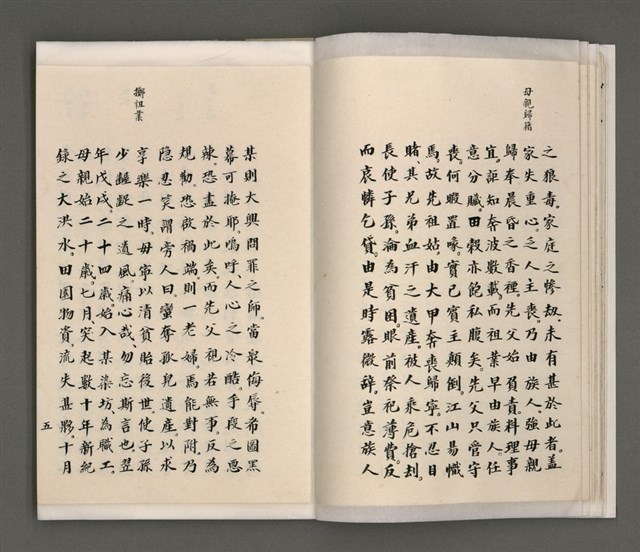 母親歸籍
之狼毒。家庭之慘劫。未有甚於此者。蓋
家失重心。乏人主喪。乃由族人。強母親
歸奉晨昏之香禋。先父始負責料理事
宜。詎知奔波數載。而祖業早由族人任
意分贓。田穀亦飽私腹矣。先父只管守
喪。何暇置喙。實已賓主顛倒。江山易幟
馬。故先祖姑。由大甲奔喪歸寧。不忍目
睹。其兄弟血汗之遺產。被人乘危搶刼。
長使子孫。淪為貧困。眼前祭祀薄費。反
而哀憐乞貸。由是時露微辭。豈意族人
擲祖業
某則大興問罪之師。當眾侮辱。希圖黑
幕可掩耶。嗚呼人心之冷酷。手段之惡
辣。恐盡於此矣。而先父視若無事。反為
規勸。恐啟禍端。則一老婦。馬能對附。乃
隱忍笑謂旁人曰。蠻奪孤兒遺產。以求
享樂一時。毋寧以清貧貽後世。使子孫
少齷齪之遺風。痛心哉。勿忘斯言也。翌
年戊戌。二十四歲。始入某染坊為職工。
母親始二十歲。七月突起數十年新紀
錄之大洪水。田園物資。流失甚夥。十月
五